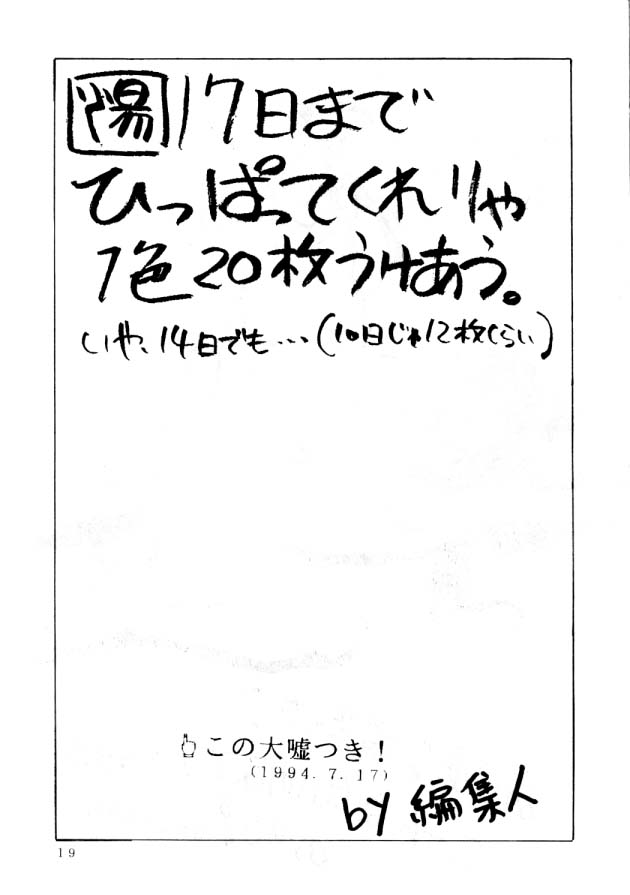 陽 17日まで
ひっぱってくれりゃ
1色20枚うけあう。
いや、14日でも…(10日じゃ12枚くらい)
この大嘘つき！
(1994. 7. 17)
by 編集人
19